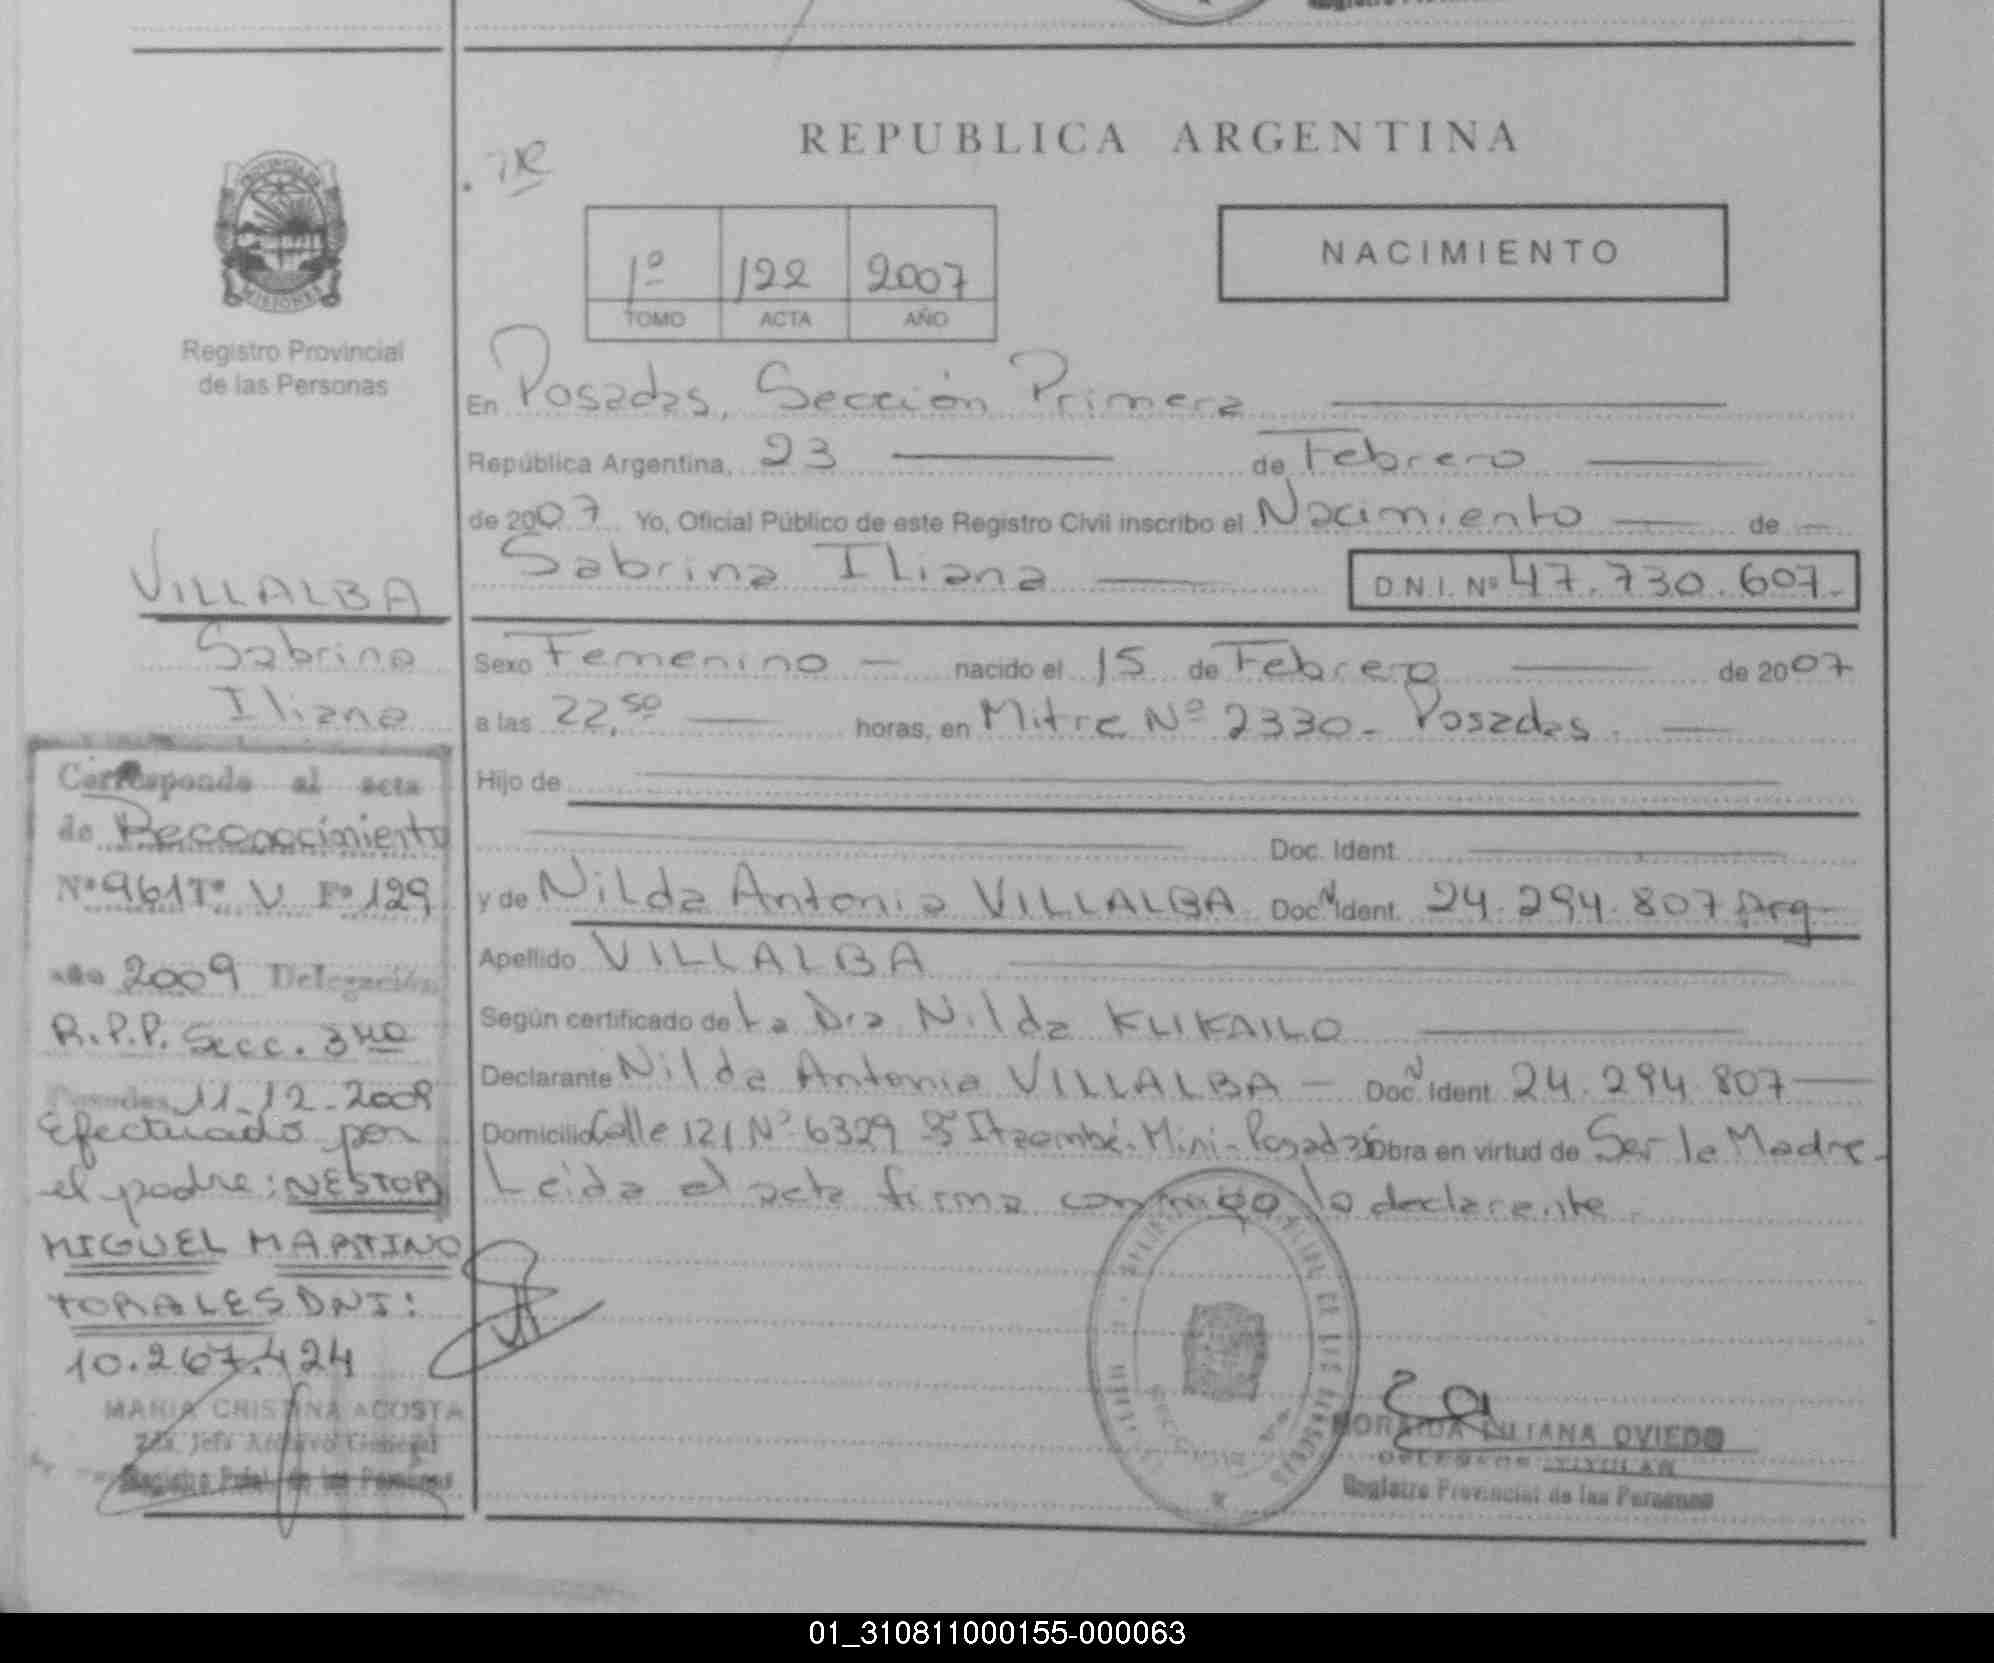 REPUBLICA ARGENTINA
NACIMIENTO
1º 122 2007
TOMO ACTA AÑO
PROVINCIA DE
MISIONES
Registro Provincial
de las Personas
En Posadas, Sección Primera
República Argentina, 23 de Febrero
de 2007 Yo, Oficial Público de este Registro Civil inscribo el Nacimiento de
Sabrina Iliana D.N.I. Nº 47.730.607.-
VILLALBA
Sabrina
Iliana
Sexo Femenino nacido el 15 de Febrero de 2007
a las 22,50 horas, en Mitre Nº 2330 - Posadas.
Hijo de
Doc. Ident.
y de Nilda Antonia VILLALBA Doc. N Ident. 24.294.807 Arg
Apellido VILLALBA
Según certificado de La Dra Nilda KLIKAILO
Declarante Nilda Antonia VILLALBA - Doc. N Ident. 24.294.807
Domicilio Calle 121 Nº 6329 Bº Itaembé-Mini-Posadas Obra en virtud de Ser la Madre.-
Leida el acta firma conmigo la declarante.
Corresponde al acta
de Reconocimiento
Nº 961 Tº V Fº 129
año 2009 Delegación
R.P.P. Secc. 3ra
Posadas 11-12-2009
Efectuado por
el padre: NESTOR
MIGUEL MARTINO
TORALES DNI:
10.267.424
MARIA CRISTINA ACOSTA
Jefe Archivo General
Registro Pcial. de las Personas
LILIANA OVIEDO
DELEGADA TITULAR
Registro Provincial de las Personas
01_310811000155-000063